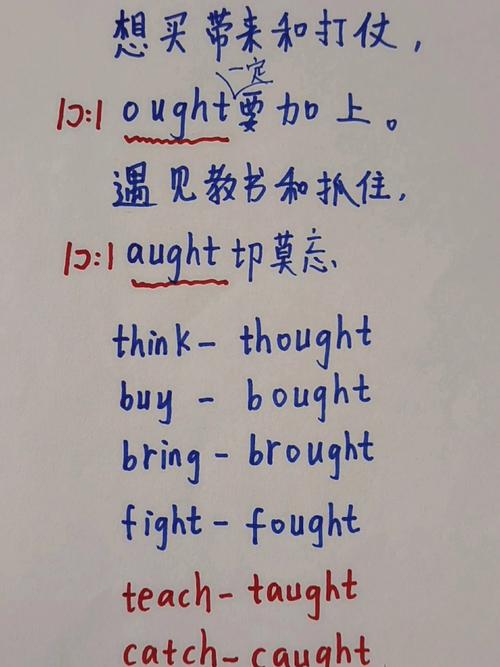 想买带来和打仗，
/ɔ:/ ought一定要加上。
遇见教书和抓住，
/ɔ:/ aught切莫忘、
think - thought
buy - bought
bring - brought
fight - fought
teach - taught
catch - caught